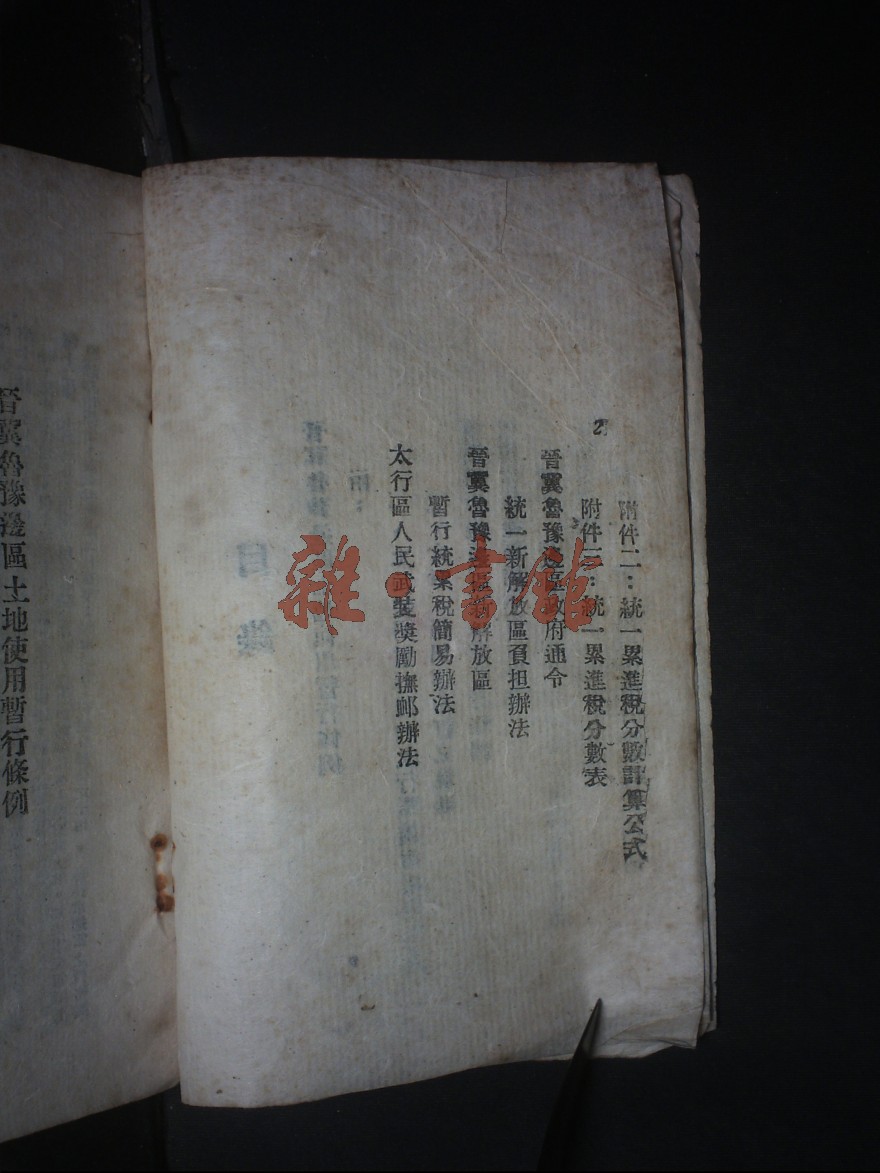 2
附件二：統一累進稅分數計算公式
附件三：統一累進稅分數表
晉冀魯豫邊區政府通令
統一新解放區負担辦法
晉冀魯豫邊區新解放區
暫行統累稅簡易辦法
太行區人民武裝獎勵撫卹辦法
晉冀魯豫邊區土地使用暫行條例
雜·書館